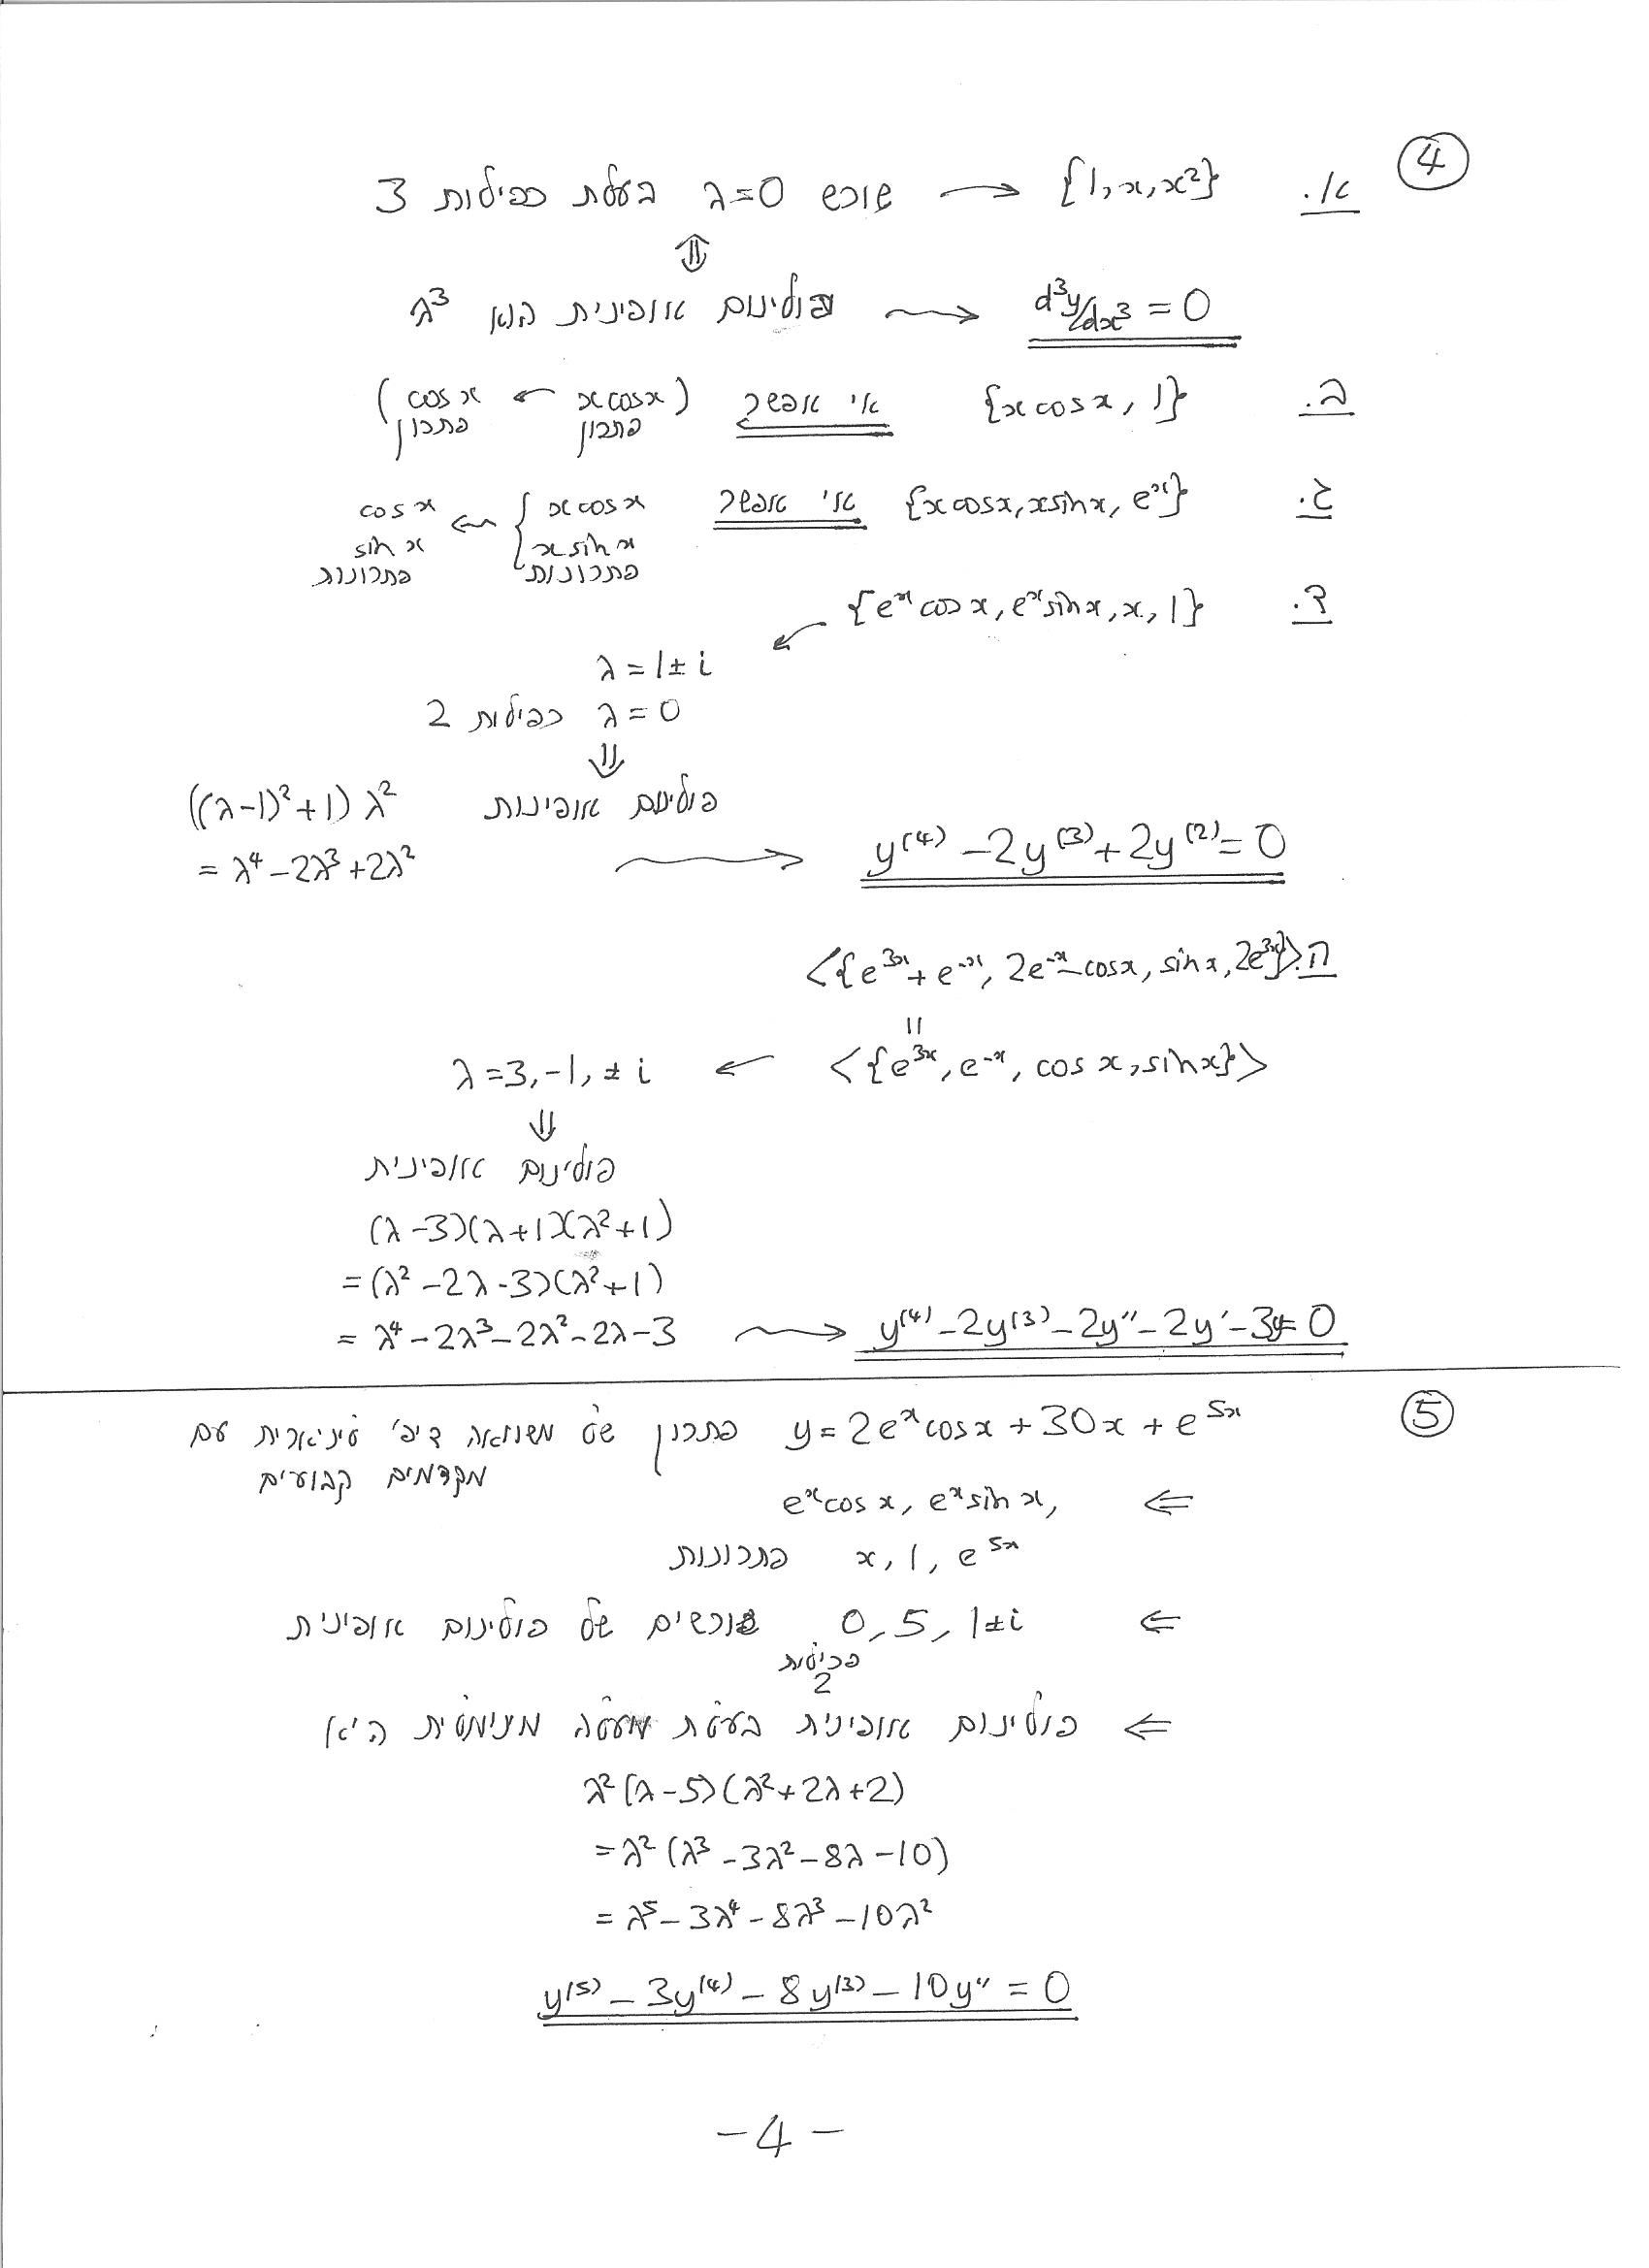 ④
א. {1, x, x²} → שורש λ=0 בעלת כפילות 3
⇕
d³y/dx³ = 0 ⇝ פולינום אופינית הוא λ³
ב. {x cos x, 1} אי אפשר (x cos x פתרון ← cos x פתרון)
ג. {x cos x, x sin x, e^x} אי אפשר { x cos x
x sin x פתרונות ← cos x
sin x פתרונות
ד. {e^x cos x, e^x sin x, x, 1}
λ = 1 ± i
λ = 0 כפילות 2
⇓
פולינום אופינית ((λ-1)²+1) λ²
= λ⁴ - 2λ³ + 2λ² ⇝ y⁽⁴⁾ - 2y⁽³⁾ + 2y⁽²⁾ = 0
ה. <{e^{3x} + e^{-x}, 2e^{-x} - cos x, sin x, 2e^{3x}}>
=
<{e^{3x}, e^{-x}, cos x, sin x}> ← λ = 3, -1, ± i
⇓
פולינום אופינית
(λ-3)(λ+1)(λ²+1)
= (λ² - 2λ - 3)(λ²+1)
= λ⁴ - 2λ³ - 2λ² - 2λ - 3 ⇝ y⁽⁴⁾ - 2y⁽³⁾ - 2y'' - 2y' - 3y = 0
⑤
y = 2e^x cos x + 30x + e^{5x} פתרון של משוואה דיפ' לינארית עם
מקדמים קבועים
⇐ e^x cos x, e^x sin x,
x, 1, e^{5x} פתרונות
⇐ 0, 5, 1±i שורשים של פולינום אופינית
כפילות
2
⇐ פולינום אופינית בעלת מעלה מינימלית היא
λ²(λ-5)(λ²+2λ+2)
= λ²(λ³ - 3λ² - 8λ - 10)
= λ⁵ - 3λ⁴ - 8λ³ - 10λ²
y⁽⁵⁾ - 3y⁽⁴⁾ - 8y⁽³⁾ - 10y'' = 0
- 4 -